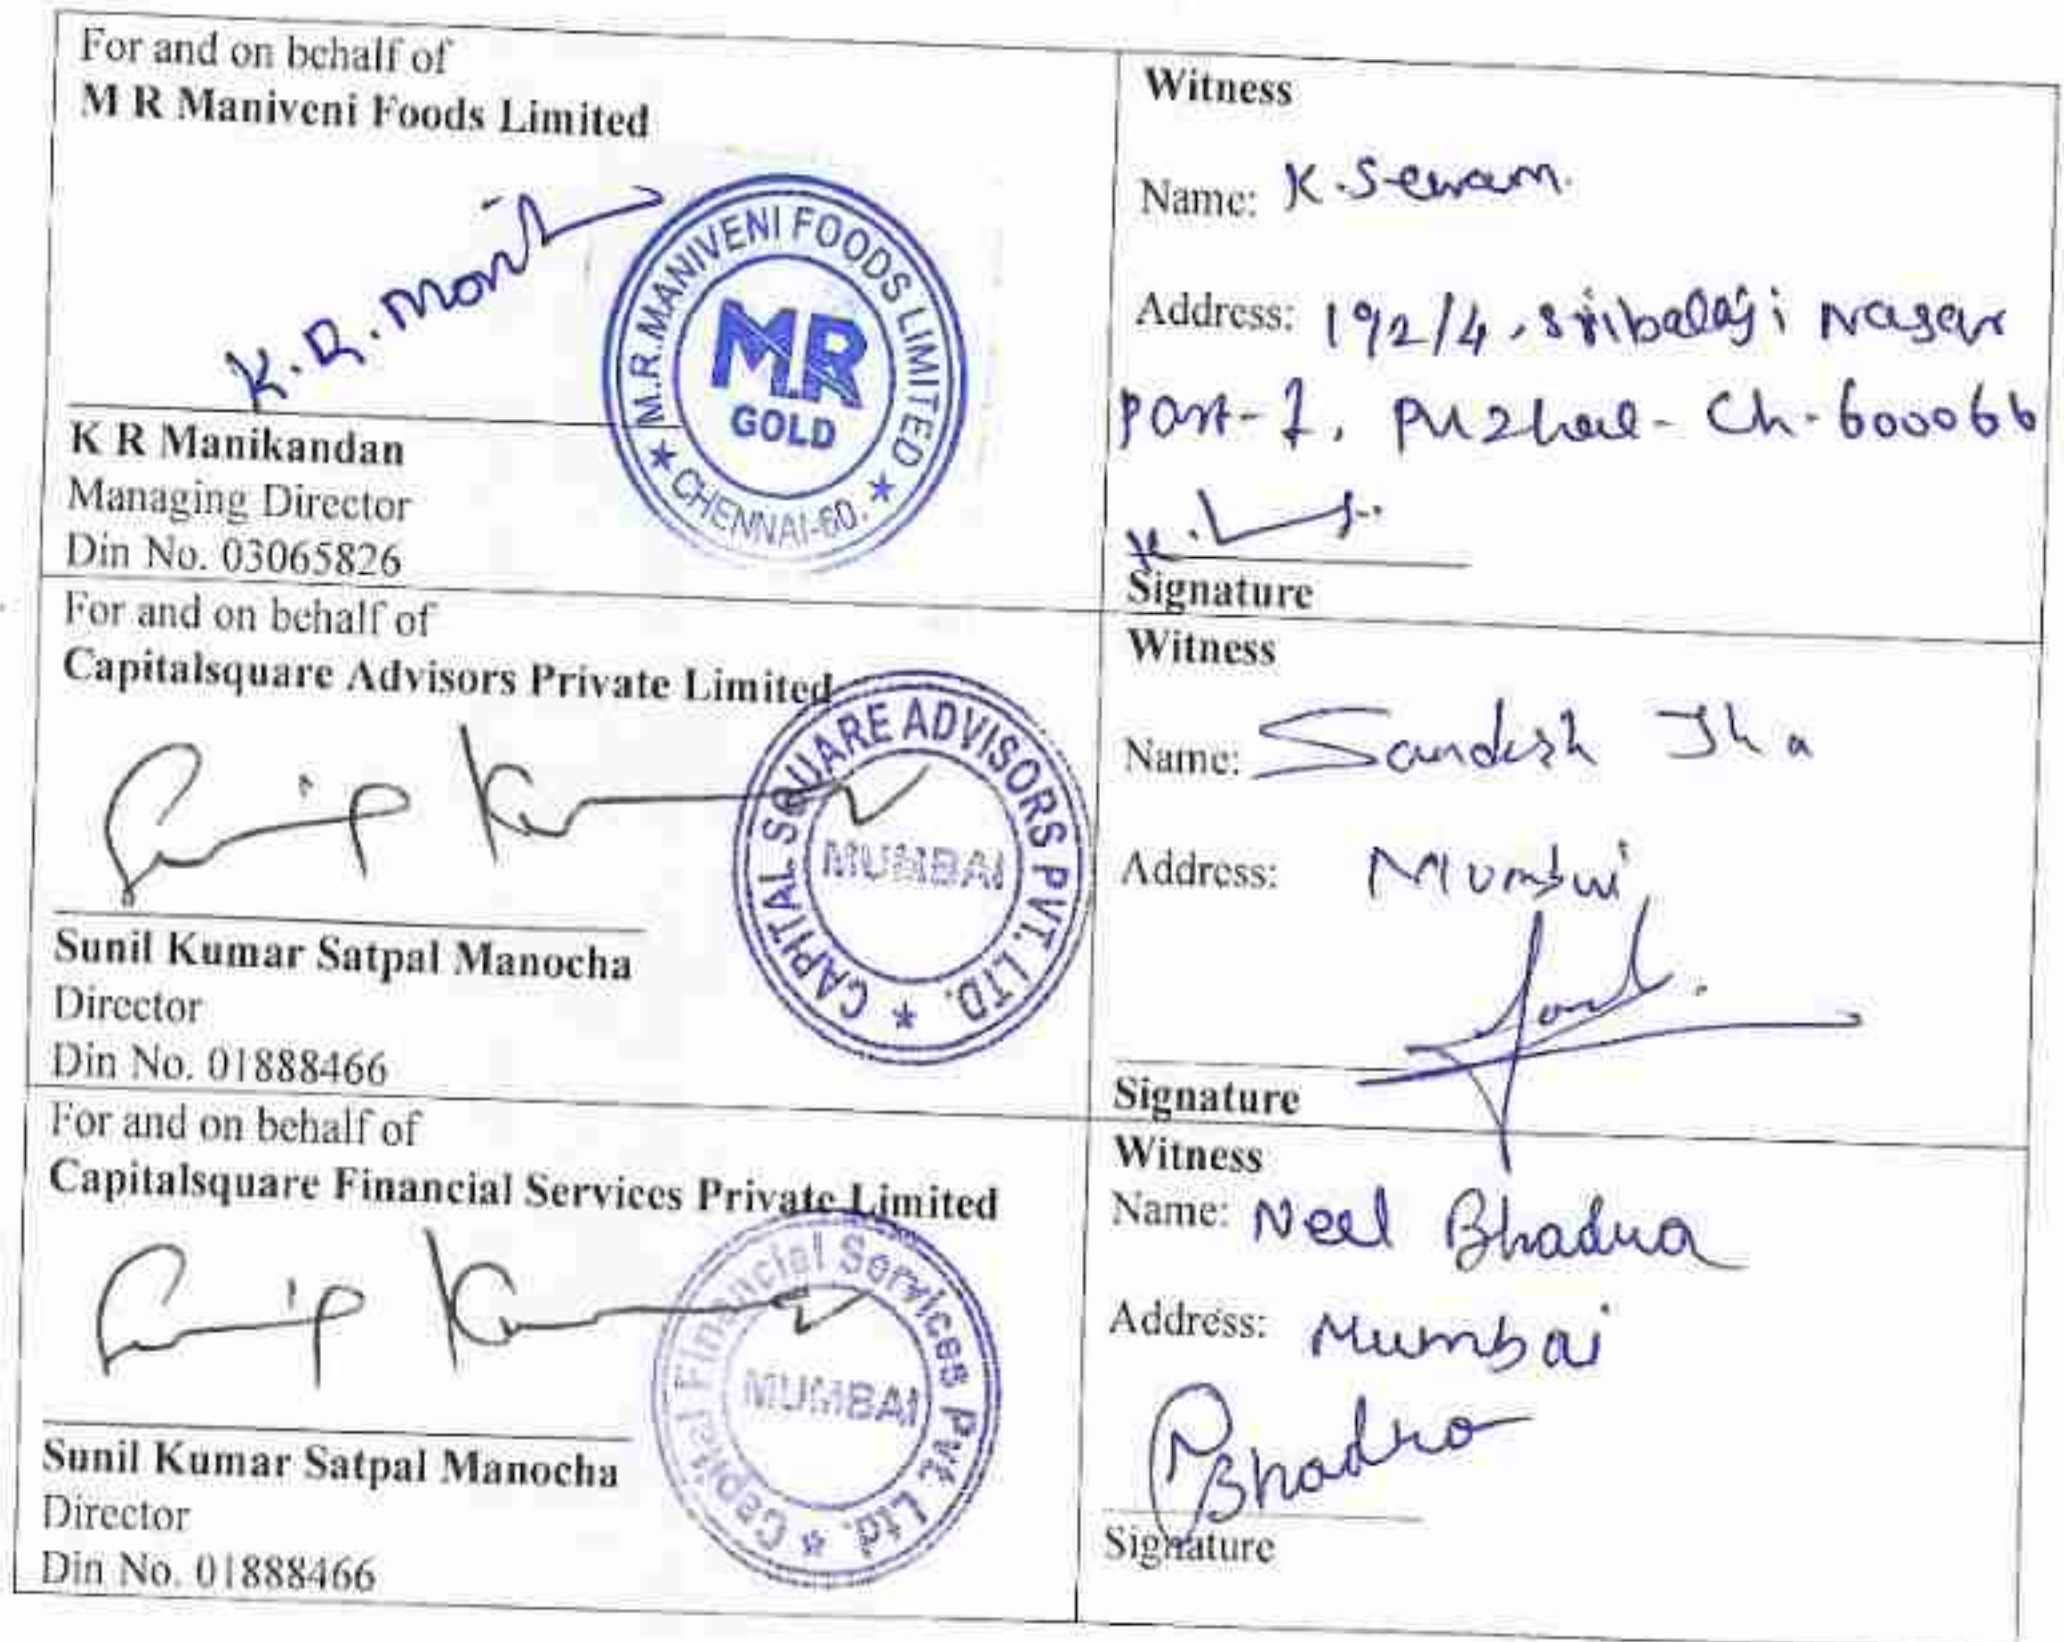 For and on behalf of
M R Maniveni Foods Limited
K.R.Mani
M.R.MANIVENI FOODS LIMITED
★ CHENNAI-60. ★
MR
GOLD
K R Manikandan
Managing Director
Din No. 03065826
Witness
Name: K.
Address: 192/4, sribalaji Nagar
Part-1, Puzhal- Ch-600066
Signature
For and on behalf of
Capitalsquare Advisors Private Limited
CAPITAL SQUARE ADVISORS PVT. LTD. ★
MUMBAI
Sunil Kumar Satpal Manocha
Director
Din No. 01888466
Witness
Name: Sandesh Jha
Address: Mumbai
Signature
For and on behalf of
Capitalsquare Financial Services Private Limited
Capital Financial Services Pvt. Ltd. ★
MUMBAI
Sunil Kumar Satpal Manocha
Director
Din No. 01888466
Witness
Name: Neel Bhadra
Address: Mumbai
NBhadra
Signature